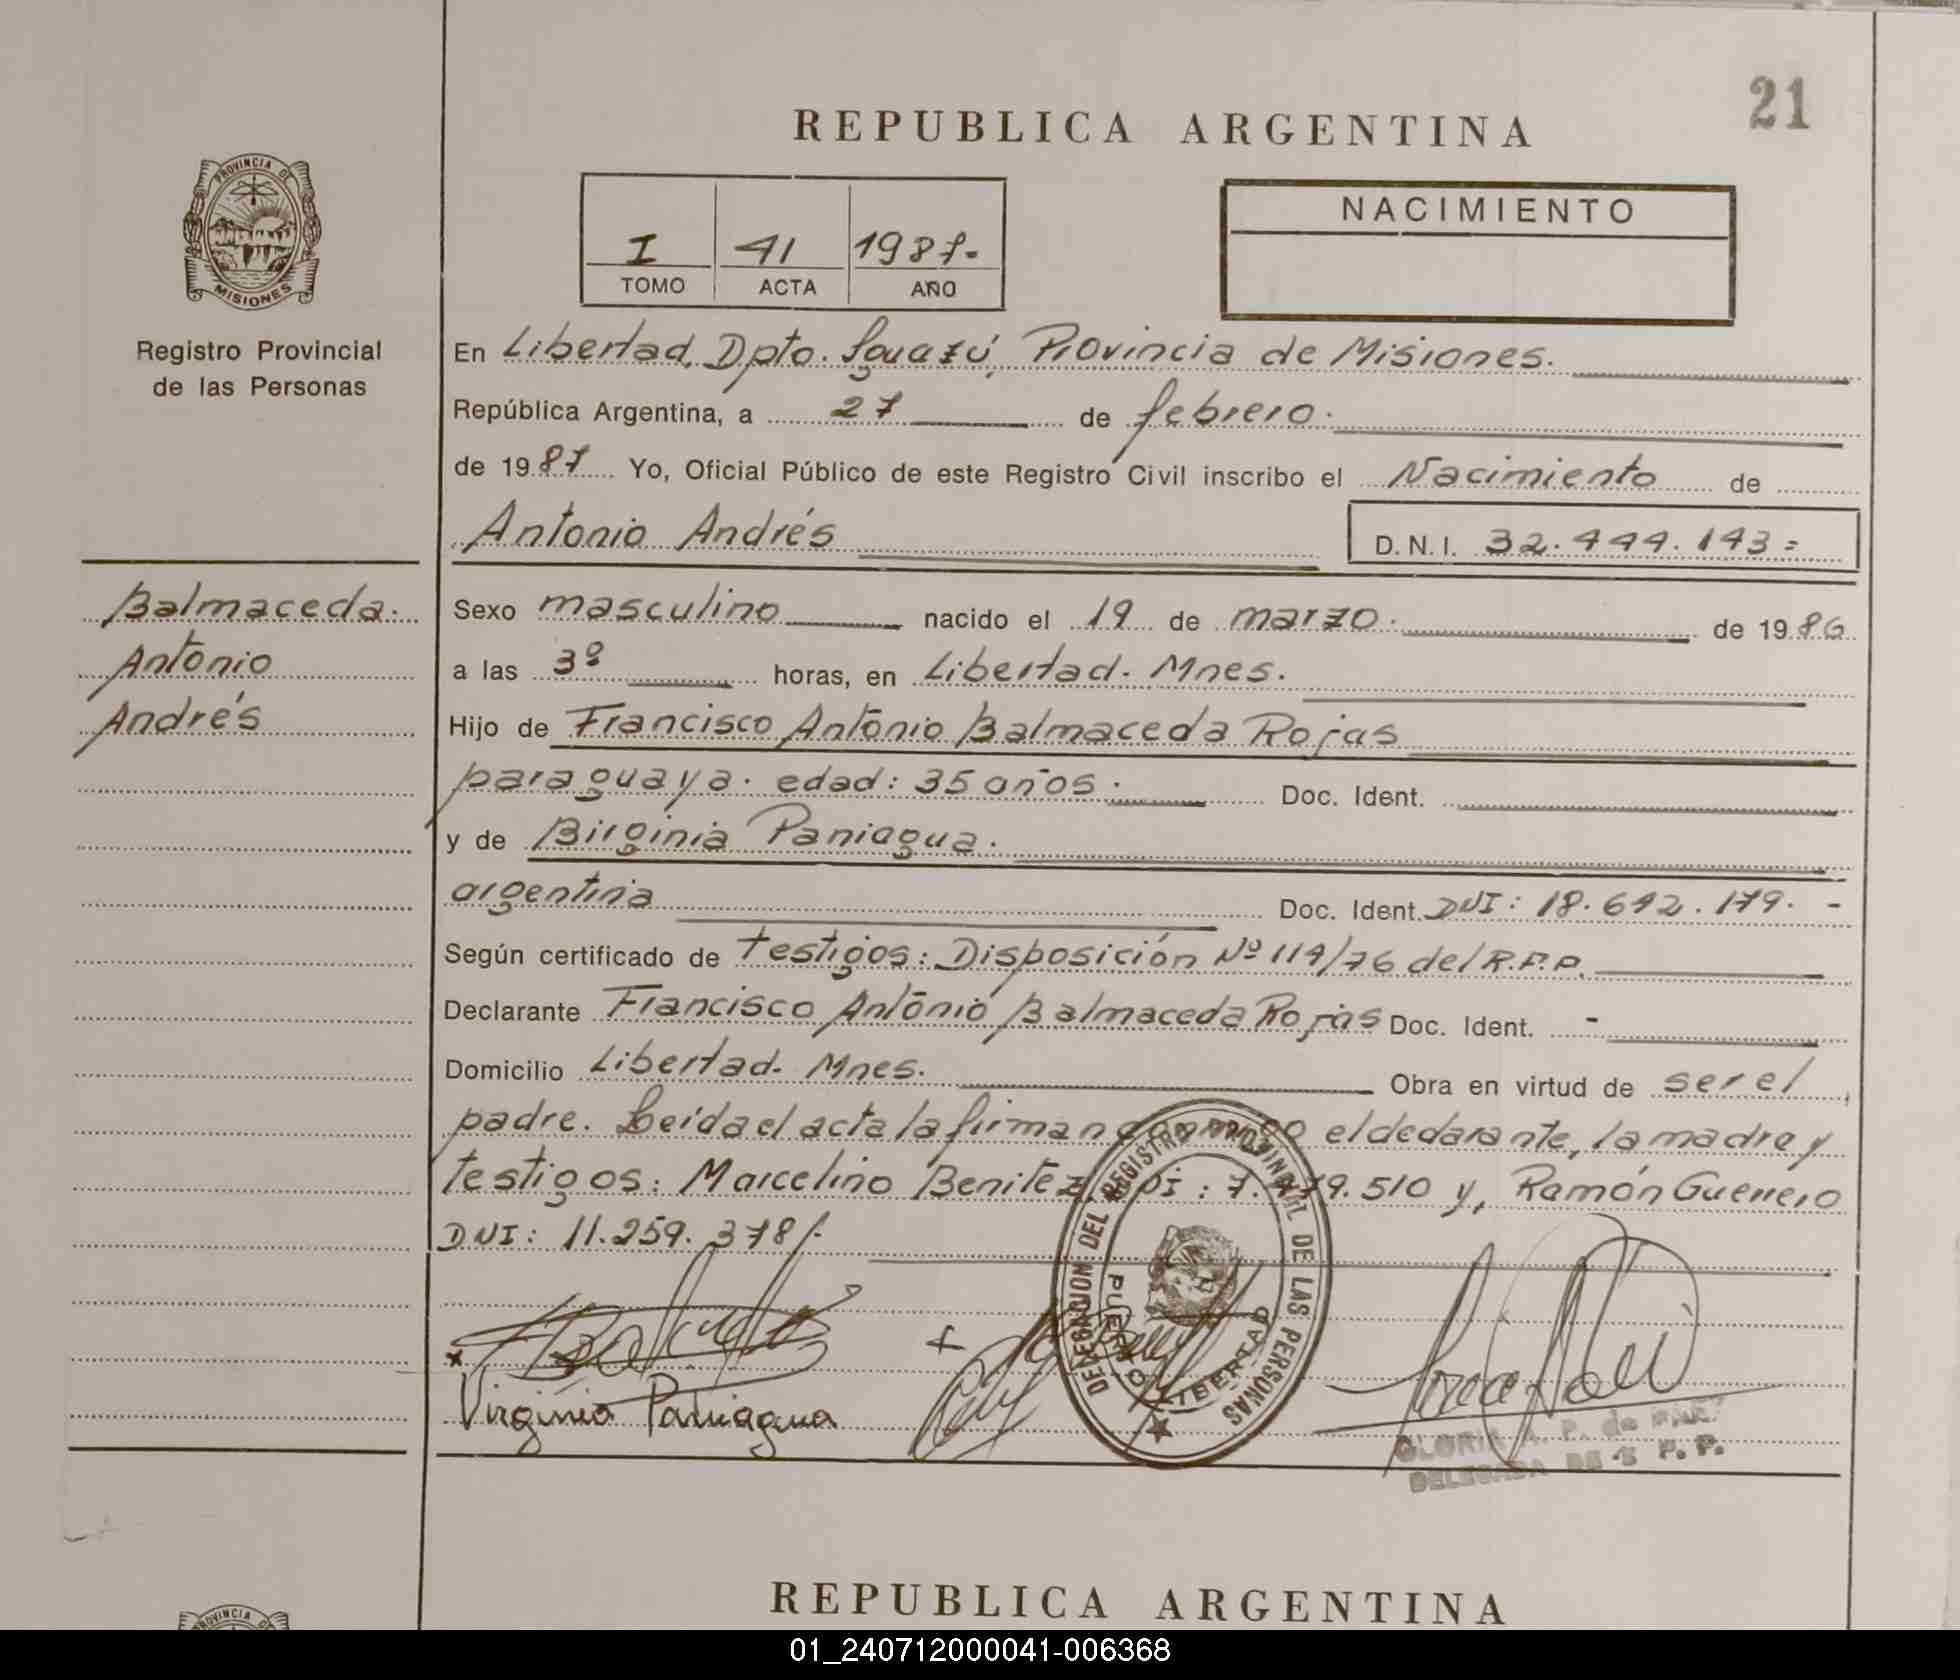 21
REPUBLICA ARGENTINA
PROVINCIA DE
MISIONES
Registro Provincial
de las Personas
I 41 1987.
TOMO ACTA AÑO
NACIMIENTO
En Libertad, Dpto. Iguazú, Provincia de Misiones.
República Argentina, a 27 de febrero.
de 1987 Yo, Oficial Público de este Registro Civil inscribo el Nacimiento de
Antonio Andrés
D.N.I. 32.444.143=
Balmaceda.
Antonio
Andrés
Sexo masculino nacido el 19 de marzo. de 1986
a las 3º horas, en Libertad. Mnes.
Hijo de Francisco Antonio Balmaceda Rojas
paraguaya. edad: 35 años. Doc. Ident.
y de Birginia Paniagua.
argentina Doc. Ident. DNI: 18.642.179. -
Según certificado de testigos: Disposición Nº 114/76 del R.P.P.
Declarante Francisco Antonio Balmaceda Rojas Doc. Ident. -
Domicilio Libertad. Mnes. Obra en virtud de ser el
padre. Leida el acta la firman conmigo el declarante, la madre y
testigos: Marcelino Benitez, DNI: .510 y, Ramón Guerrero
DNI: 11.259.378/.
DELEGACION DEL REGISTRO PROVINCIAL DE LAS PERSONAS
PUERTO LIBERTAD
Virginia Paniagua
GLORIA A. P. de
DELEGADA P. P.
REPUBLICA ARGENTINA
PROVINCIA DE
01_240712000041-006368